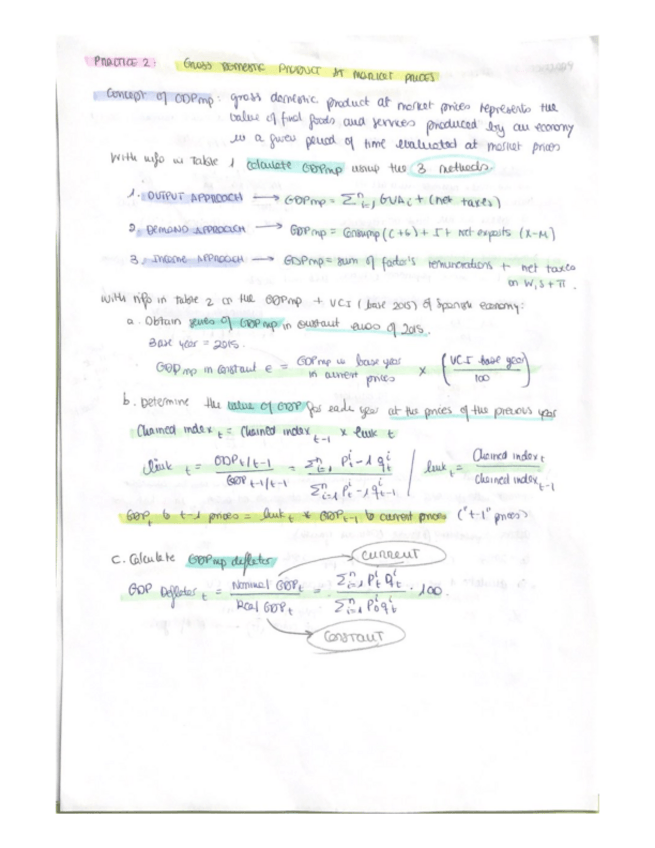 PRACTICE 2: GROSS DOMESTIC PRODUCT AT MARKET PRICES
Concept of GDPmp: gross domestic product at market prices represents the
value of final goods and services produced by an economy
in a given period of time evaluated at market prices
With info in Table 1 calculate GDPmp using the 3 methods.
1. OUTPUT APPROACH → GDPmp = Σⁿᵢ₌₁ GVAi + (net taxes)
2. DEMAND APPROACH → GDPmp = Consump (C+G) + I + net exports (X-M)
3. INCOME APPROACH → GDPmp = sum of factor's remunerations + net taxes
on W, S + π.
With info in table 2 on the GDPmp + VCI (base 2015) of Spanish economy:
a. Obtain series of GDPmp in constant euros of 2015.
Base year = 2015.
GDPmp in constant € = GDPmp in base year in current prices × (VCI base year / 100)
b. Determine the value of GDP for each year at the prices of the previous year
Chained index t = Chained index t-1 × link t
link t = GDPt/t-1 / GDPt-1/t-1 = Σⁿᵢ₌₁ Pⁱt-1 qⁱt / Σⁿᵢ₌₁ Pⁱt-1 qⁱt-1 | link t = Chained index t / Chained index t-1
GDPt to t-1 prices = link t * GDPt-1 to current prices ("t-1" prices)
c. Calculate GDPmp deflator
current
GDP Deflator t = Nominal GDPt / Real GDPt = Σⁿᵢ₌₁ Pⁱt qⁱt / Σⁿᵢ₌₁ Pⁱ0 qⁱt · 100.
CONSTANT